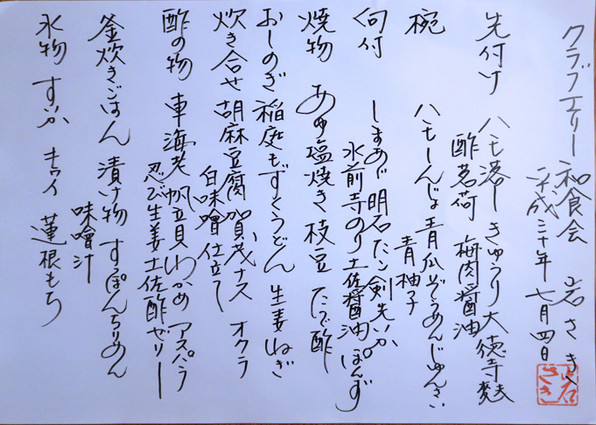 クラブエリー 和食会 岩さき
平成三十年 七月四日
先付け 八モ落し きゅうり 大徳寺麸
酢茗荷 梅肉醤油
椀 ハモしんじょ 青瓜ぞうめん じゅんさい
青柚子
向付 しまあじ 明石だこ 剣先いか
水前寺のり 土佐醤油 ぽんず
焼物 あゆ塩焼き 枝豆 たで酢
おしのぎ 稲庭もずくうどん 生姜 ねぎ
炊き合せ 胡麻豆腐 賀茂ナス オクラ
白味噌仕立て
酢の物 車海老 帆立貝 わかめ アスパラ
忍び生姜 土佐酢ゼリー
釜炊きごはん 漬け物 すっぽんちりめん
味噌汁
水物 すいか キウイ 蓮根もち
岩さき